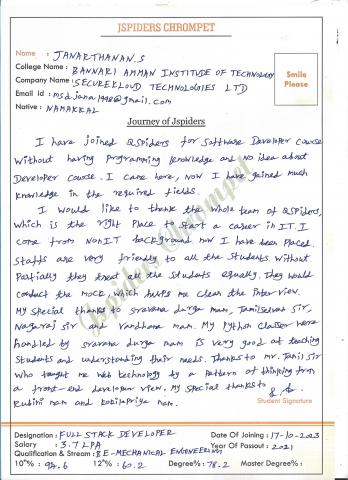 JSPIDERS CHROMPET
Name : JANARTHANAN.S
College Name : BANNARI AMMAN INSTITUDE OF TECHNOLOGY
Company Name : SECUREKLOUD TECHNOLOGIES LTD
Email Id : msd.jana1998@gmail.com
Native : NAMAKKAL
Smile
Please
Journey of Jspiders
I have joined QSpiders for Software Developer Course
Without having programming knowledge and no idea about
Developer Course. I came here, now I have gained much
knowledge in the required fields.
I would like to thank the whole team of QSPIDERS,
which is the right place to start a career in IT. I
come from NON IT background now I have been placed.
Staffs are very friendly to all the students without
Partially they treat all the students equally. They would
conduct the mock which helps me clear the interview.
My special thanks to sravana durga mam, Tamilselvan sir,
Nagaraj sir and Vandhana mam. My python classes were
handled by sravana durga mam is very good at teaching
Students and understanding their needs. Thanks to mr. Tamil sir
Who taught me web technology by a pattern of thinking from
a front-end developer view. My special thanks to
Rubini mam and Kokilapriya mam.
Student Signature
Jspiders Chrompet
Designation : FULL STACK DEVELOPER
Date Of Joining : 17-10-2023
Salary : 3.7 LPA
Year Of Passout : 2021
Qualification & Stream : BE-MECHANICAL ENGINEERING
10th% : 94.6 12th% : 60.2 Degree% : 78.2 Master Degree% :